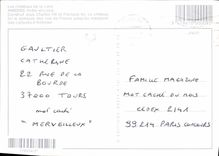 GAULTIER
CATHERINE
22 RUE DE LA
BOURDE
37000 TOURS
mot caché
" MERVEILLEUX "
FAMILLE MAGAZINE
MOT CACHÉ DU MOIS
CEDEX 2141
99214 PARIS CONCOURS